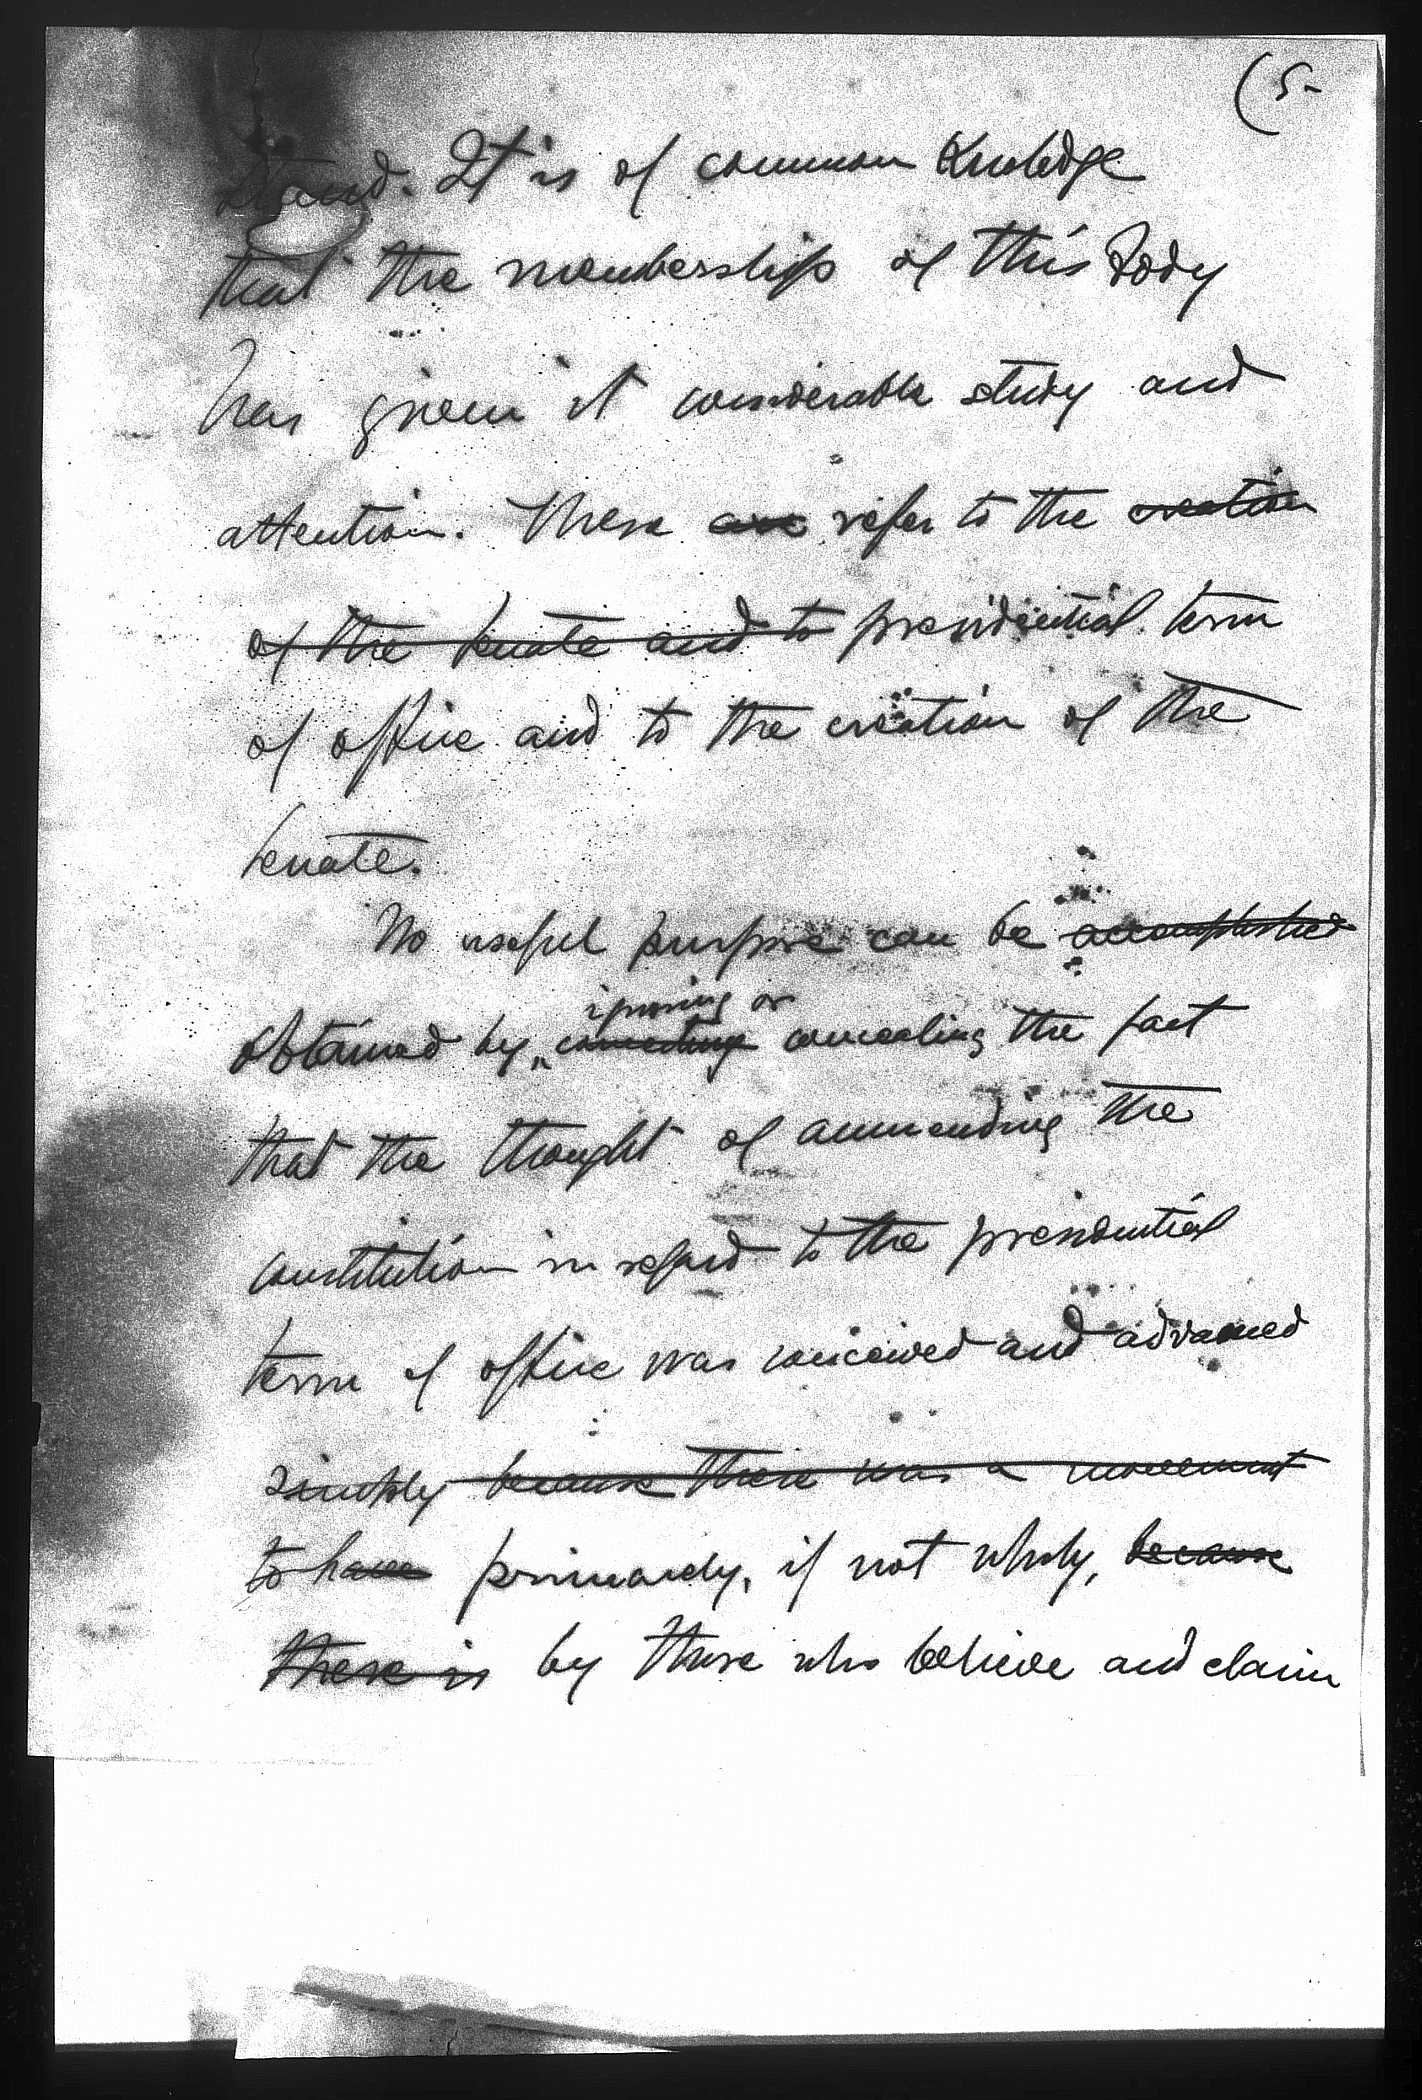 (5-
stand. It is of common knowledge
that the membership of this Body
has given it considerable study and
attention. These are refer to the creation
of the Senate and to presidential term
of office and to the creation of the
Senate.
No useful purpose can be accomplished
ignoring or
obtained by concealing the fact
that the thought of ammending the
constitution in regard to the presidential
term of office was conceived and advanced
simply because there was a movement
to have primarely, if not wholy, because
there is by those who believe and claim